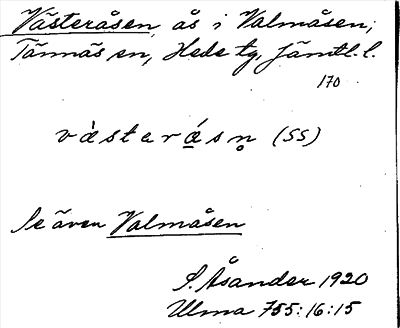 Västeråsen, ås i Valmåsen,
Tännäs sn, Hede tg, Jämtl. l.
170
vàsterǻsn̥ (SS)
Se även Valmåsen
S. Åsander 1920
Ulma 755:16:15